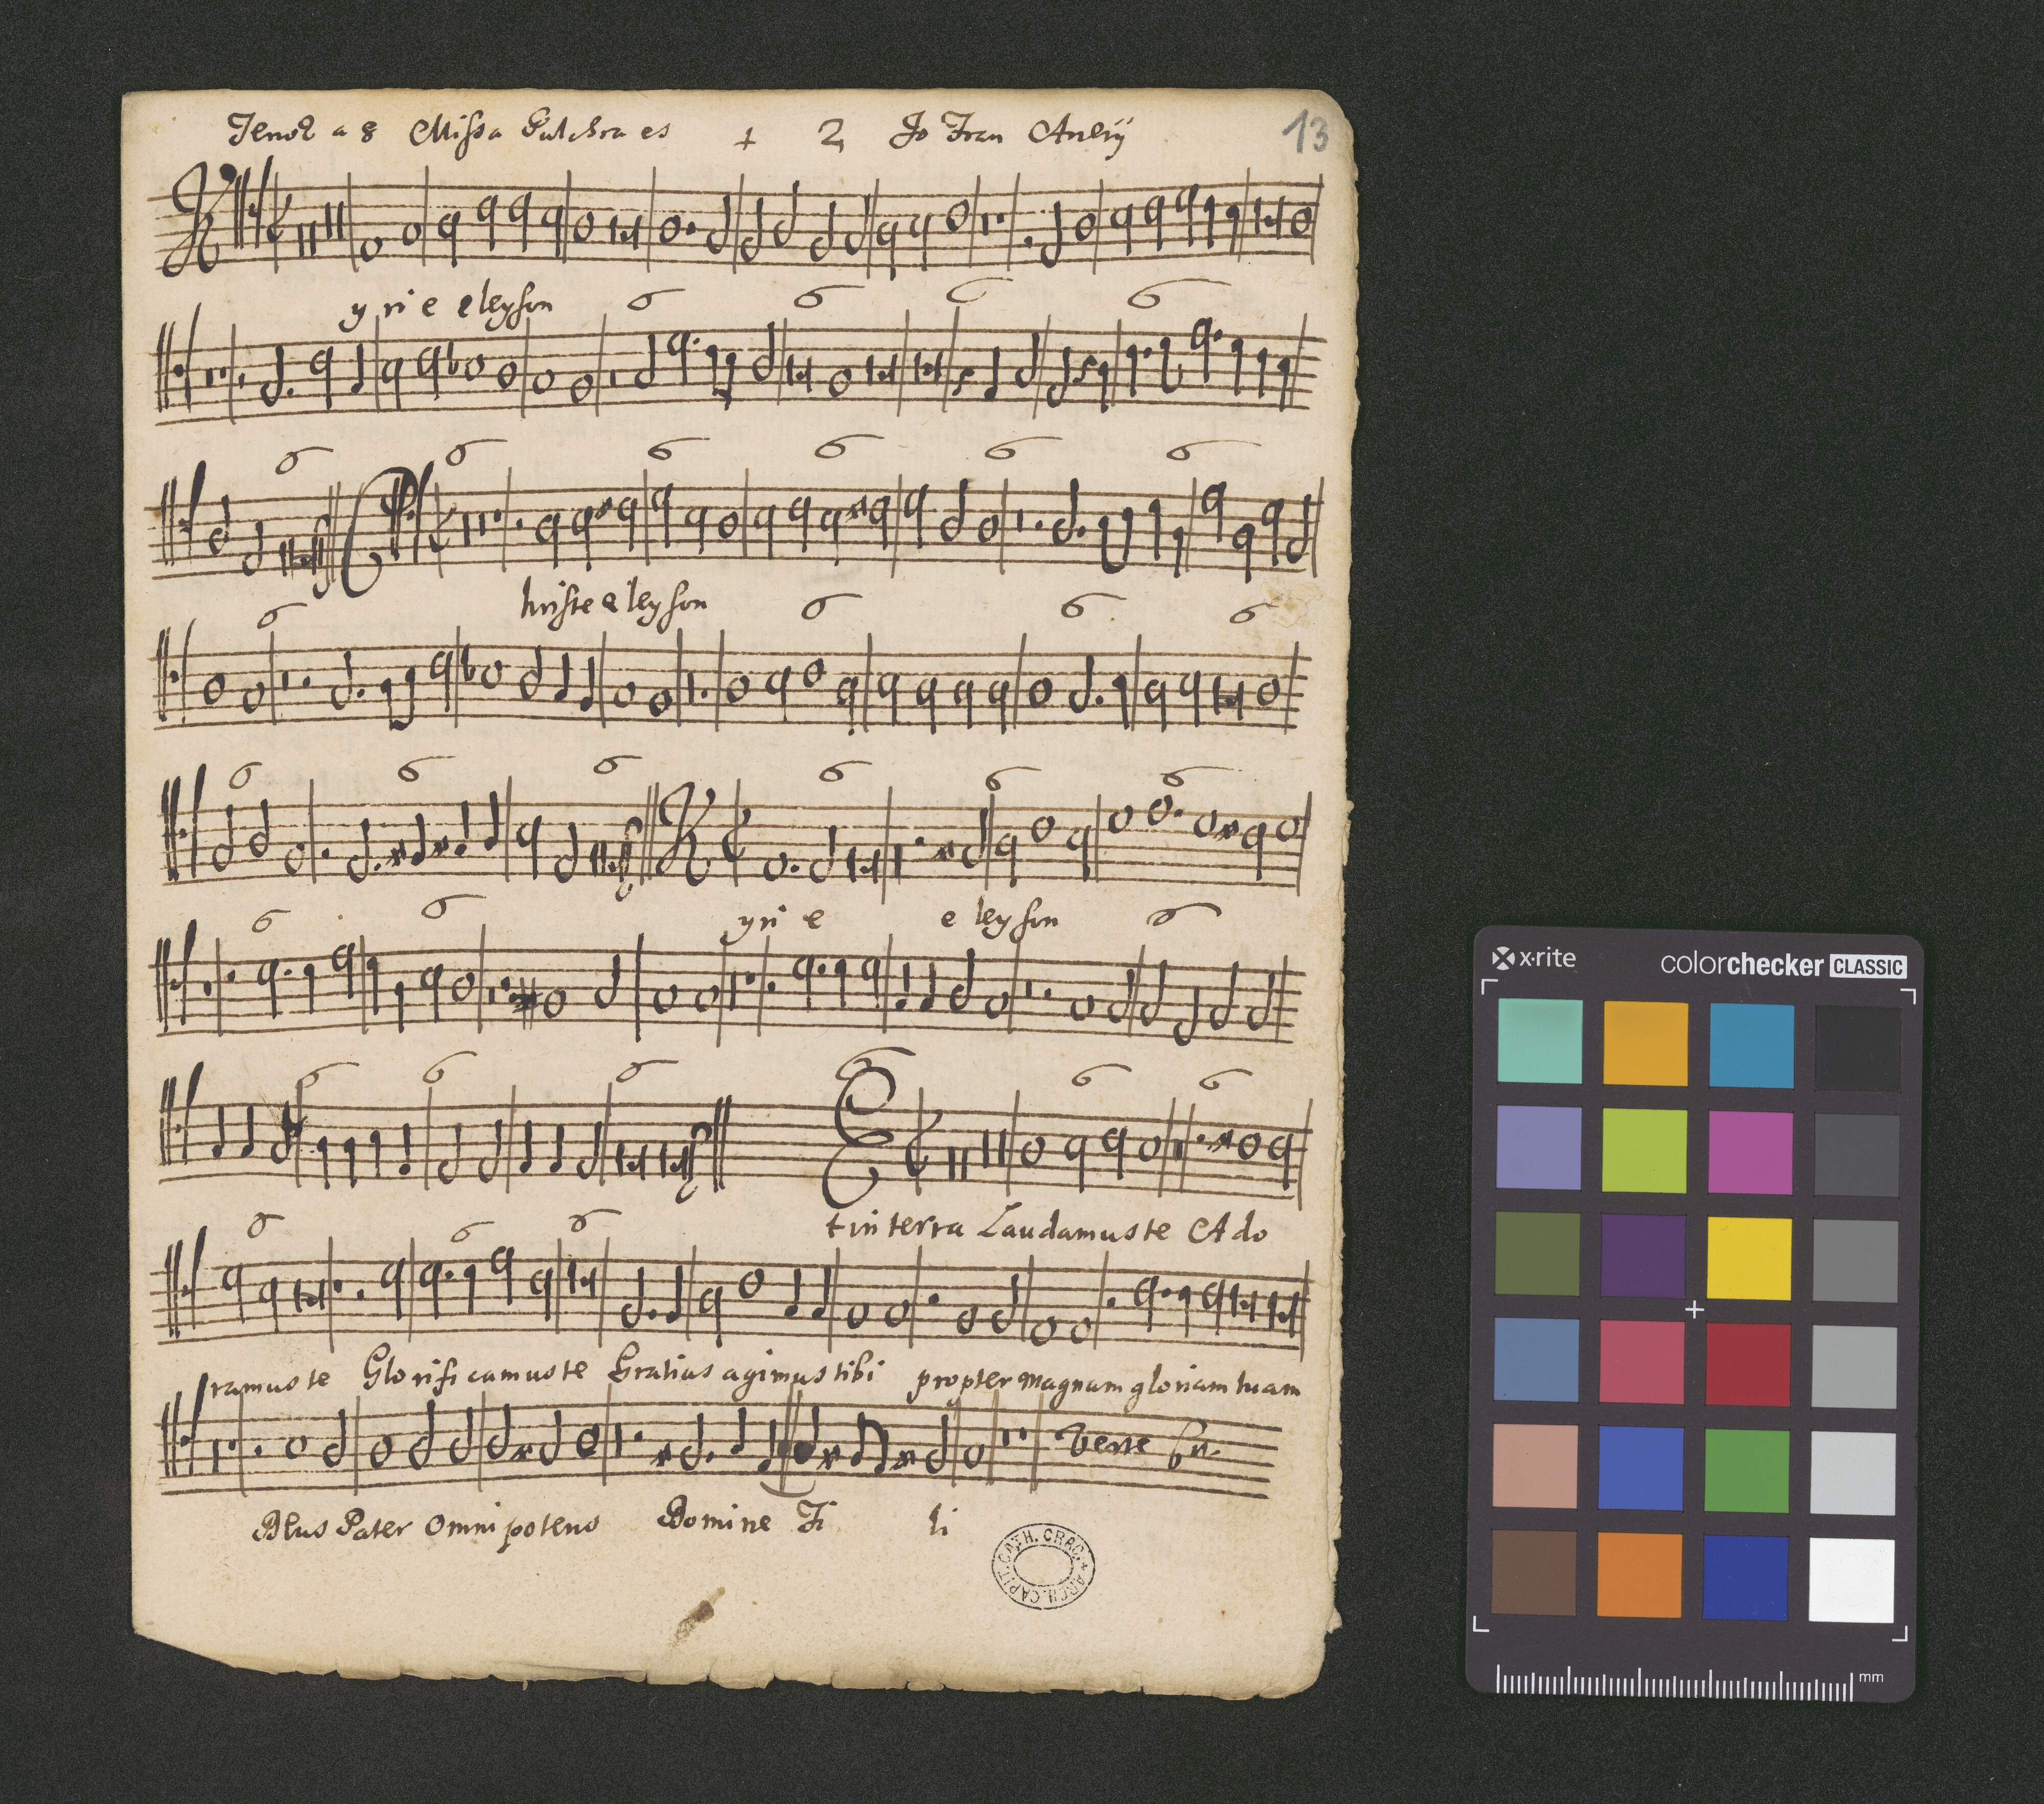 Tenor a 8 Missa Pulchra es + 2 Jo Fran Anerÿ 13
K
yri e eleyson 6 6 6 6
6 C 6 6 6 6 6
hriste eleyson
6 6 6 6
6 6 6 K 6 6 6
6 6 yri e e leyson 6
6 6 6 E 6 6
t in terra Laudamus te Ado
6 6 6
ramus te Glorificamus te Gratias agimus tibi propter magnam gloriam tuam
Verte
Deus Pater Omnipotens Domine Fi li
ARCH. CAPIT. CATH. CRAC.
x·rite colorchecker CLASSIC
mm